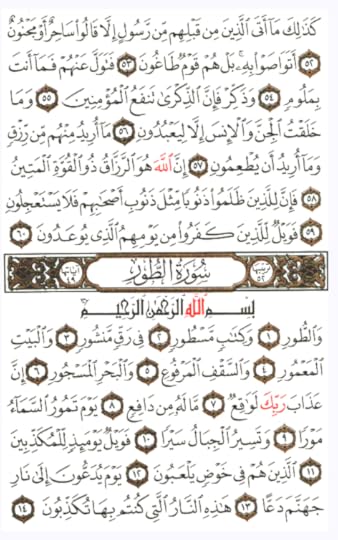 كَذَٰلِكَ مَآ أَتَى ٱلَّذِينَ مِن قَبْلِهِم مِّن رَّسُولٍ إِلَّا قَالُوا۟ سَاحِرٌ أَوْ مَجْنُونٌ
٥٢ أَتَوَاصَوْا۟ بِهِۦ ۚ بَلْ هُمْ قَوْمٌ طَاغُونَ ٥٣ فَتَوَلَّ عَنْهُمْ فَمَآ أَنتَ
بِمَلُومٍ ٥٤ وَذَكِّرْ فَإِنَّ ٱلذِّكْرَىٰ تَنفَعُ ٱلْمُؤْمِنِينَ ٥٥ وَمَا
خَلَقْتُ ٱلْجِنَّ وَٱلْإِنسَ إِلَّا لِيَعْبُدُونِ ٥٦ مَآ أُرِيدُ مِنْهُم مِّن رِّزْقٍ
وَمَآ أُرِيدُ أَن يُطْعِمُونِ ٥٧ إِنَّ ٱللَّهَ هُوَ ٱلرَّزَّاقُ ذُو ٱلْقُوَّةِ ٱلْمَتِينُ
٥٨ فَإِنَّ لِلَّذِينَ ظَلَمُوا۟ ذَنُوبًا مِّثْلَ ذَنُوبِ أَصْحَٰبِهِمْ فَلَا يَسْتَعْجِلُونِ
٥٩ فَوَيْلٌ لِّلَّذِينَ كَفَرُوا۟ مِن يَوْمِهِمُ ٱلَّذِى يُوعَدُونَ ٦٠
ترتيبها ٥٢ سُورَةُ ٱلطُّورِ آياتها ٤٩
بِسْمِ ٱللَّهِ ٱلرَّحْمَٰنِ ٱلرَّحِيمِ
وَٱلطُّورِ ١ وَكِتَٰبٍ مَّسْطُورٍ ٢ فِى رَقٍّ مَّنشُورٍ ٣ وَٱلْبَيْتِ
ٱلْمَعْمُورِ ٤ وَٱلسَّقْفِ ٱلْمَرْفُوعِ ٥ وَٱلْبَحْرِ ٱلْمَسْجُورِ ٦ إِنَّ
عَذَابَ رَبِّكَ لَوَٰقِعٌ ٧ مَّا لَهُۥ مِن دَافِعٍ ٨ يَوْمَ تَمُورُ ٱلسَّمَآءُ
مَوْرًا ٩ وَتَسِيرُ ٱلْجِبَالُ سَيْرًا ١٠ فَوَيْلٌ يَوْمَئِذٍ لِّلْمُكَذِّبِينَ
١١ ٱلَّذِينَ هُمْ فِى خَوْضٍ يَلْعَبُونَ ١٢ يَوْمَ يُدَعُّونَ إِلَىٰ نَارِ
جَهَنَّمَ دَعًّا ١٣ هَٰذِهِ ٱلنَّارُ ٱلَّتِى كُنتُم بِهَا تُكَذِّبُونَ ١٤